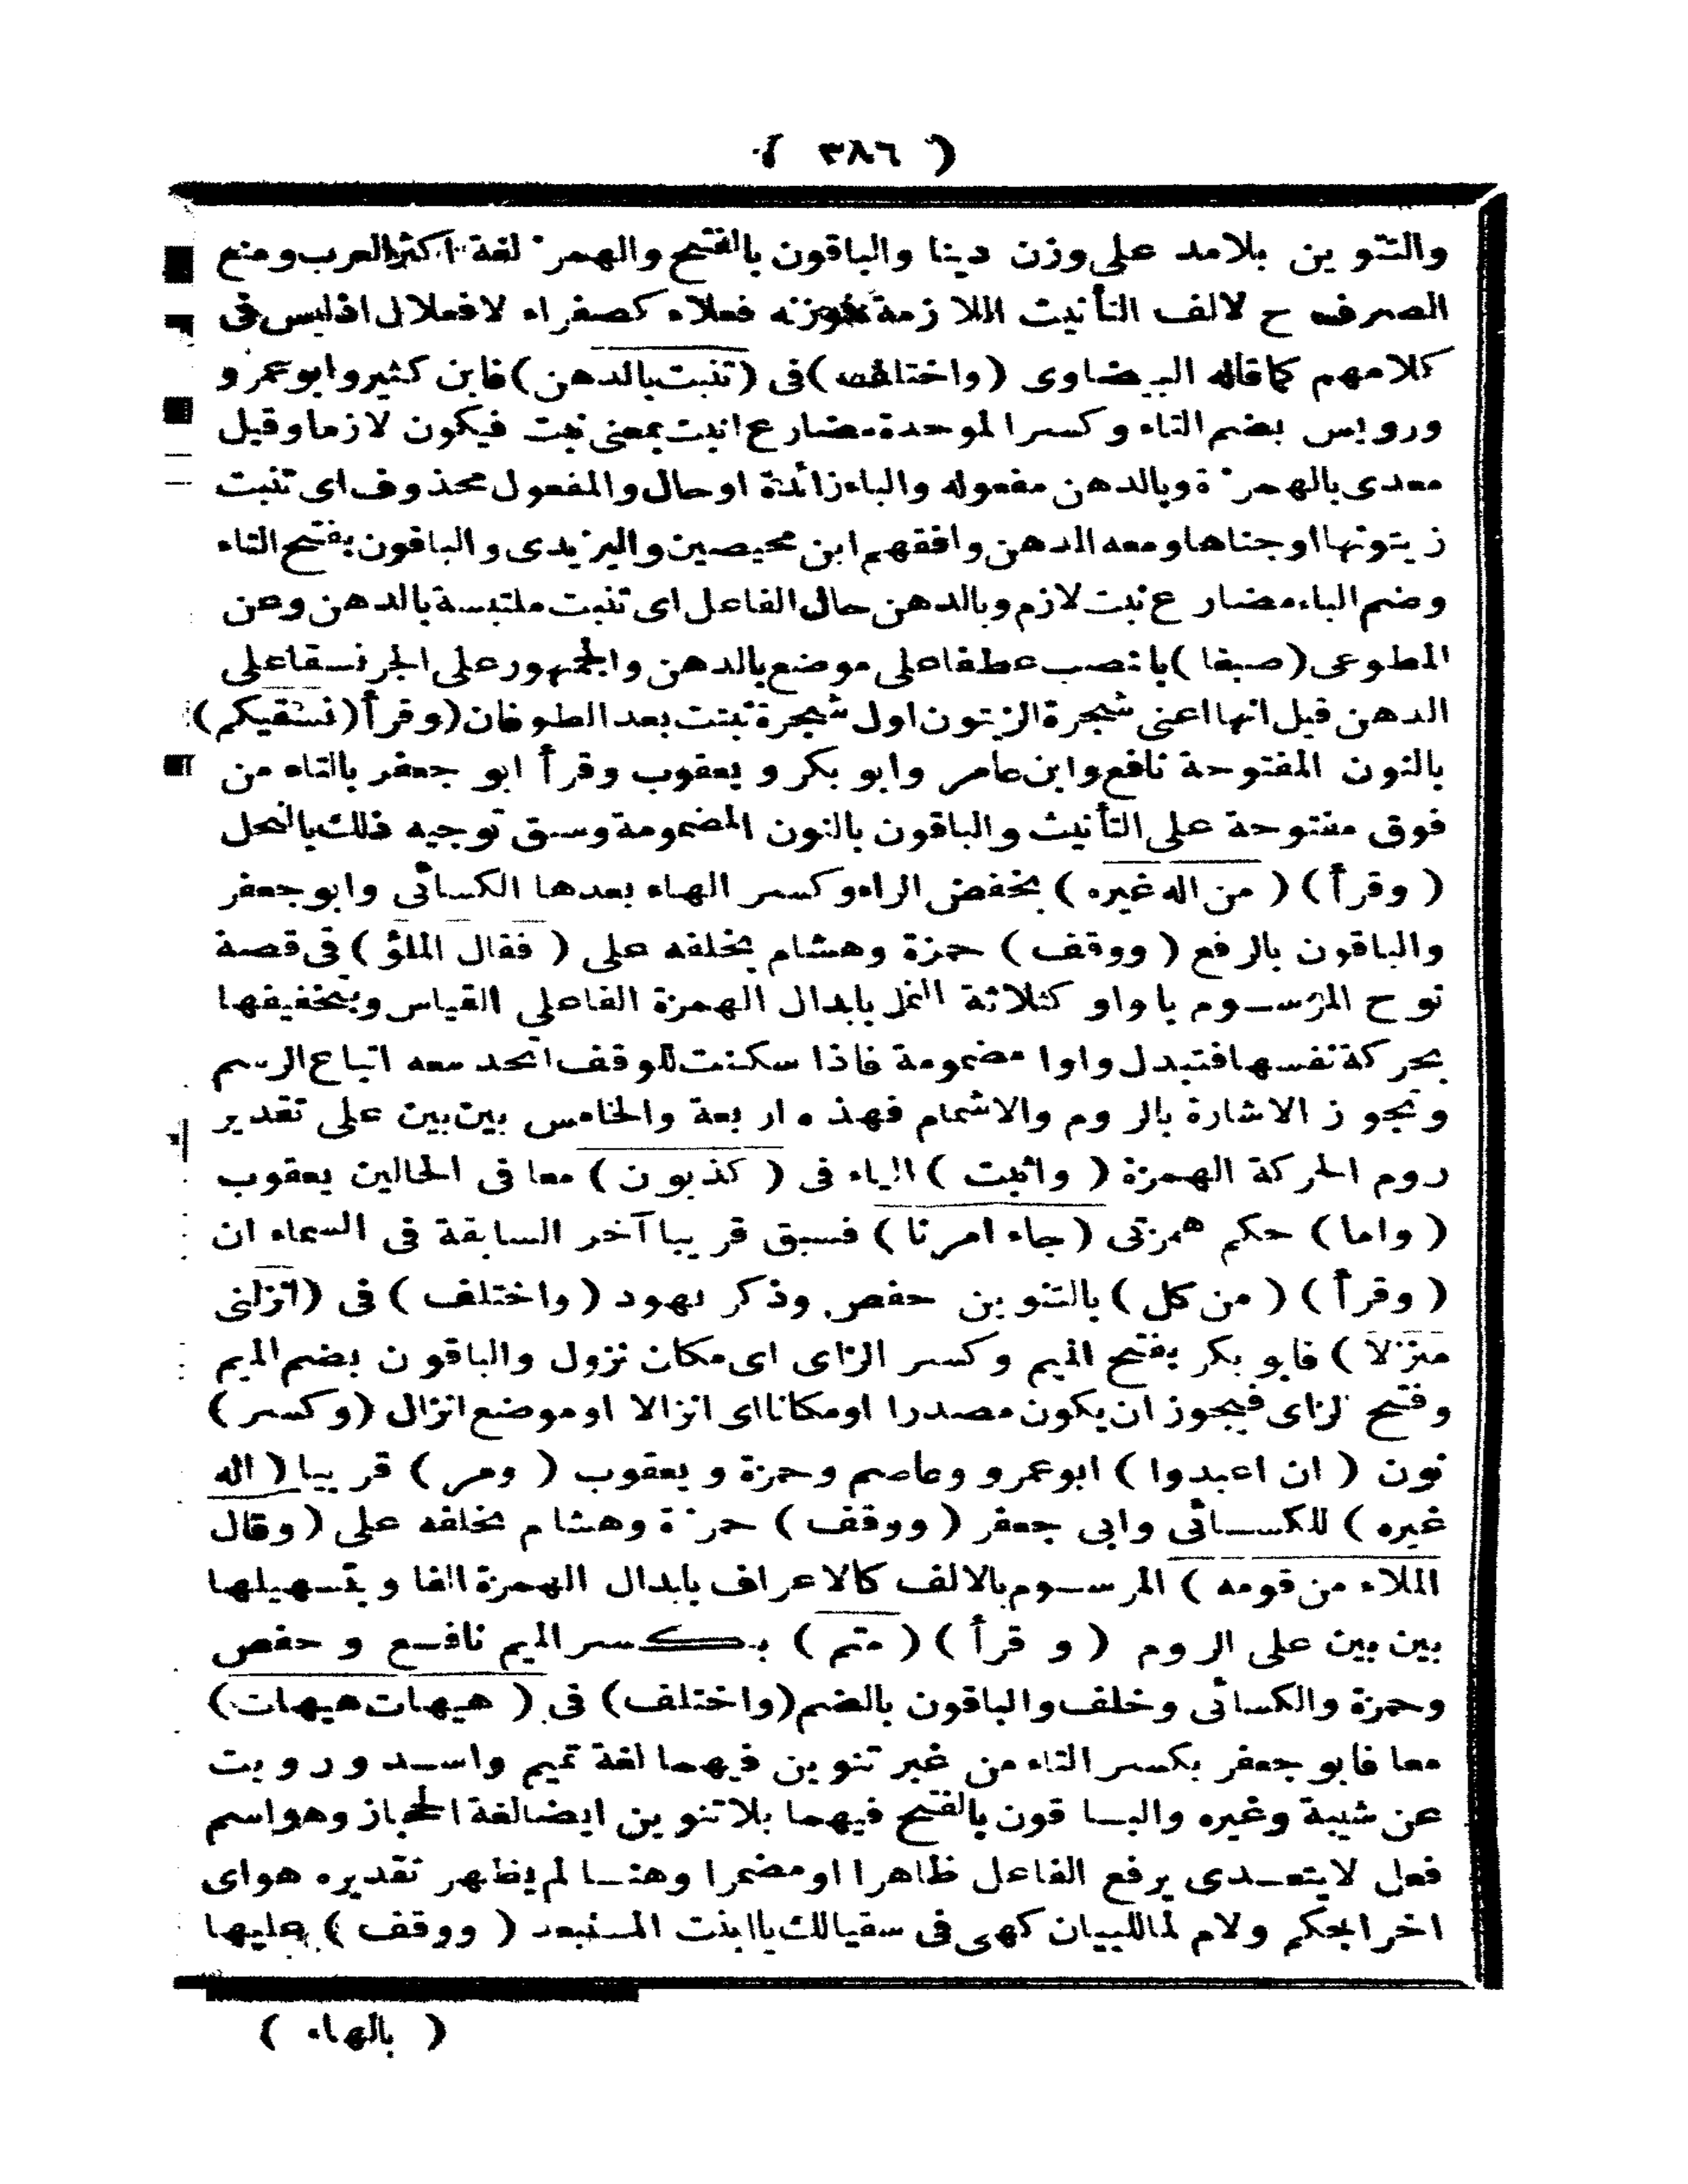 ( ٣٨٦ )
والتنوين بلامد على وزن دينا والباقون بالفتح والهمز لغة اكثر العرب ومنع
الصرف ح لالف التأنيث اللازمة فوزنه فعلاء كصفراء لا فعلال اذليس فى
كلامهم كما قاله البيضاوى (واختلف) فى (تنبت بالدهن) فابن كثير وابو عمرو
ورويس بضم التاء وكسر الموحدة مضارع انبت بمعنى نبت فيكون لازما وقيل
معدى بالهمزة وبالدهن مفعوله والباء زائدة او حال والمفعول محذوف اى تنبت
زيتونها او جناها ومعه الدهن وافقهم ابن محيصين واليزيدى والباقون بفتح التاء
وضم الباء مضارع نبت لازم وبالدهن حال الفاعل اى تنبت ملتبسة بالدهن وعن
المطوعى (صبغا) بانصب عطفا على موضع بالدهن والجمهور على الجر نسقا على
الدهن قيل انها اعنى شجرة الزيتون اول شجرة نبتت بعد الطوفان (وقرأ (نسقيكم)
بالنون المفتوحة نافع وابن عامر وابو بكر ويعقوب وقرأ ابو جعفر بالتاء من
فوق مفتوحة على التأنيث والباقون بالنون المضمومة وسبق توجيه ذلك بالنحل
(وقرأ) (من اله غيره) بخفض الراء وكسر الهاء بعدها الكسائى وابو جعفر
والباقون بالرفع (ووقف) حمزة وهشام بخلفه على (فقال الملؤ) فى قصة
نوح المرسوم باواو كثلاثة النمل بابدال الهمزة الفا على القياس وبتخفيفها
بحركة نفسها فتبدل واوا مضمومة فاذا سكنت للوقف اتحد معه اتباع الرسم
وتجوز الاشارة بالروم والاشمام فهذه اربعة والخامس بين بين على تقدير
روم الحركة الهمزة (واثبت) الياء فى (كذبون) معا فى الحالين يعقوب
(واما) حكم همزتى (جاء امرنا) فسبق قريبا آخر السابقة فى السماء ان
(وقرأ) (من كل) بالتنوين حفص وذكر بهود (واختلف) فى (انزلنى
منزلا) فابو بكر بفتح الميم وكسر الزاى اى مكان نزول والباقون بضم الميم
وفتح الزاى فيجوز ان يكون مصدرا او مكانا اى انزالا او موضع انزال (وكسر)
نون (ان اعبدوا) ابو عمرو وعاصم وحمزة ويعقوب (ومر) قريبا (اله
غيره) للكسائى وابى جعفر (ووقف) حمزة وهشام بخلفه على (وقال
الملاء من قومه) المرسوم بالالف كالاعراف بابدال الهمزة الفا وبتسهيلها
بين بين على الروم (وقرأ) (متم) بكسر الميم نافع وحفص
وحمزة والكسائى وخلف والباقون بالضم (واختلف) فى (هيهات هيهات)
معا فابو جعفر بكسر التاء من غير تنوين فيهما لغة تميم واسد ورويت
عن شيبة وغيره والباقون بالفتح فيهما بلاتنوين ايضا لغة الحجاز وهو اسم
فعل لا يتعدى يرفع الفاعل ظاهرا او مضمرا وهنا لم يظهر تقديره هو اى
اخراجكم ولام لما للبيان كهى فى سقيا لك يا ابنت المستبعد (ووقف) عليها
( بالهاء )